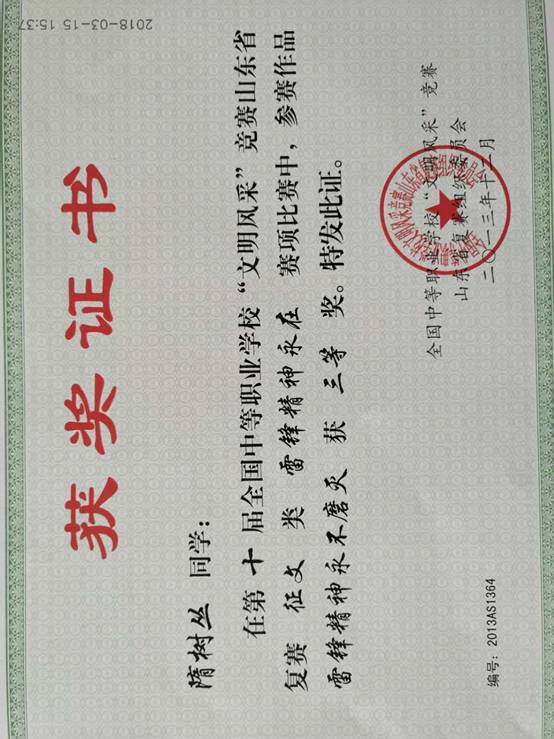 2018-03-15 15:37
获奖证书
隋树丛 同学：
在第 十 届全国中等职业学校“文明风采”竞赛山东省
复赛 征文 类 雷锋精神永在 赛项比赛中，参赛作品
雷锋精神永不磨灭 获 三等 奖。特发此证。
全国中等职业学校“文明风采”竞赛
山东省复赛组织委员会
二〇一三年十二月
编号：2013AS1364